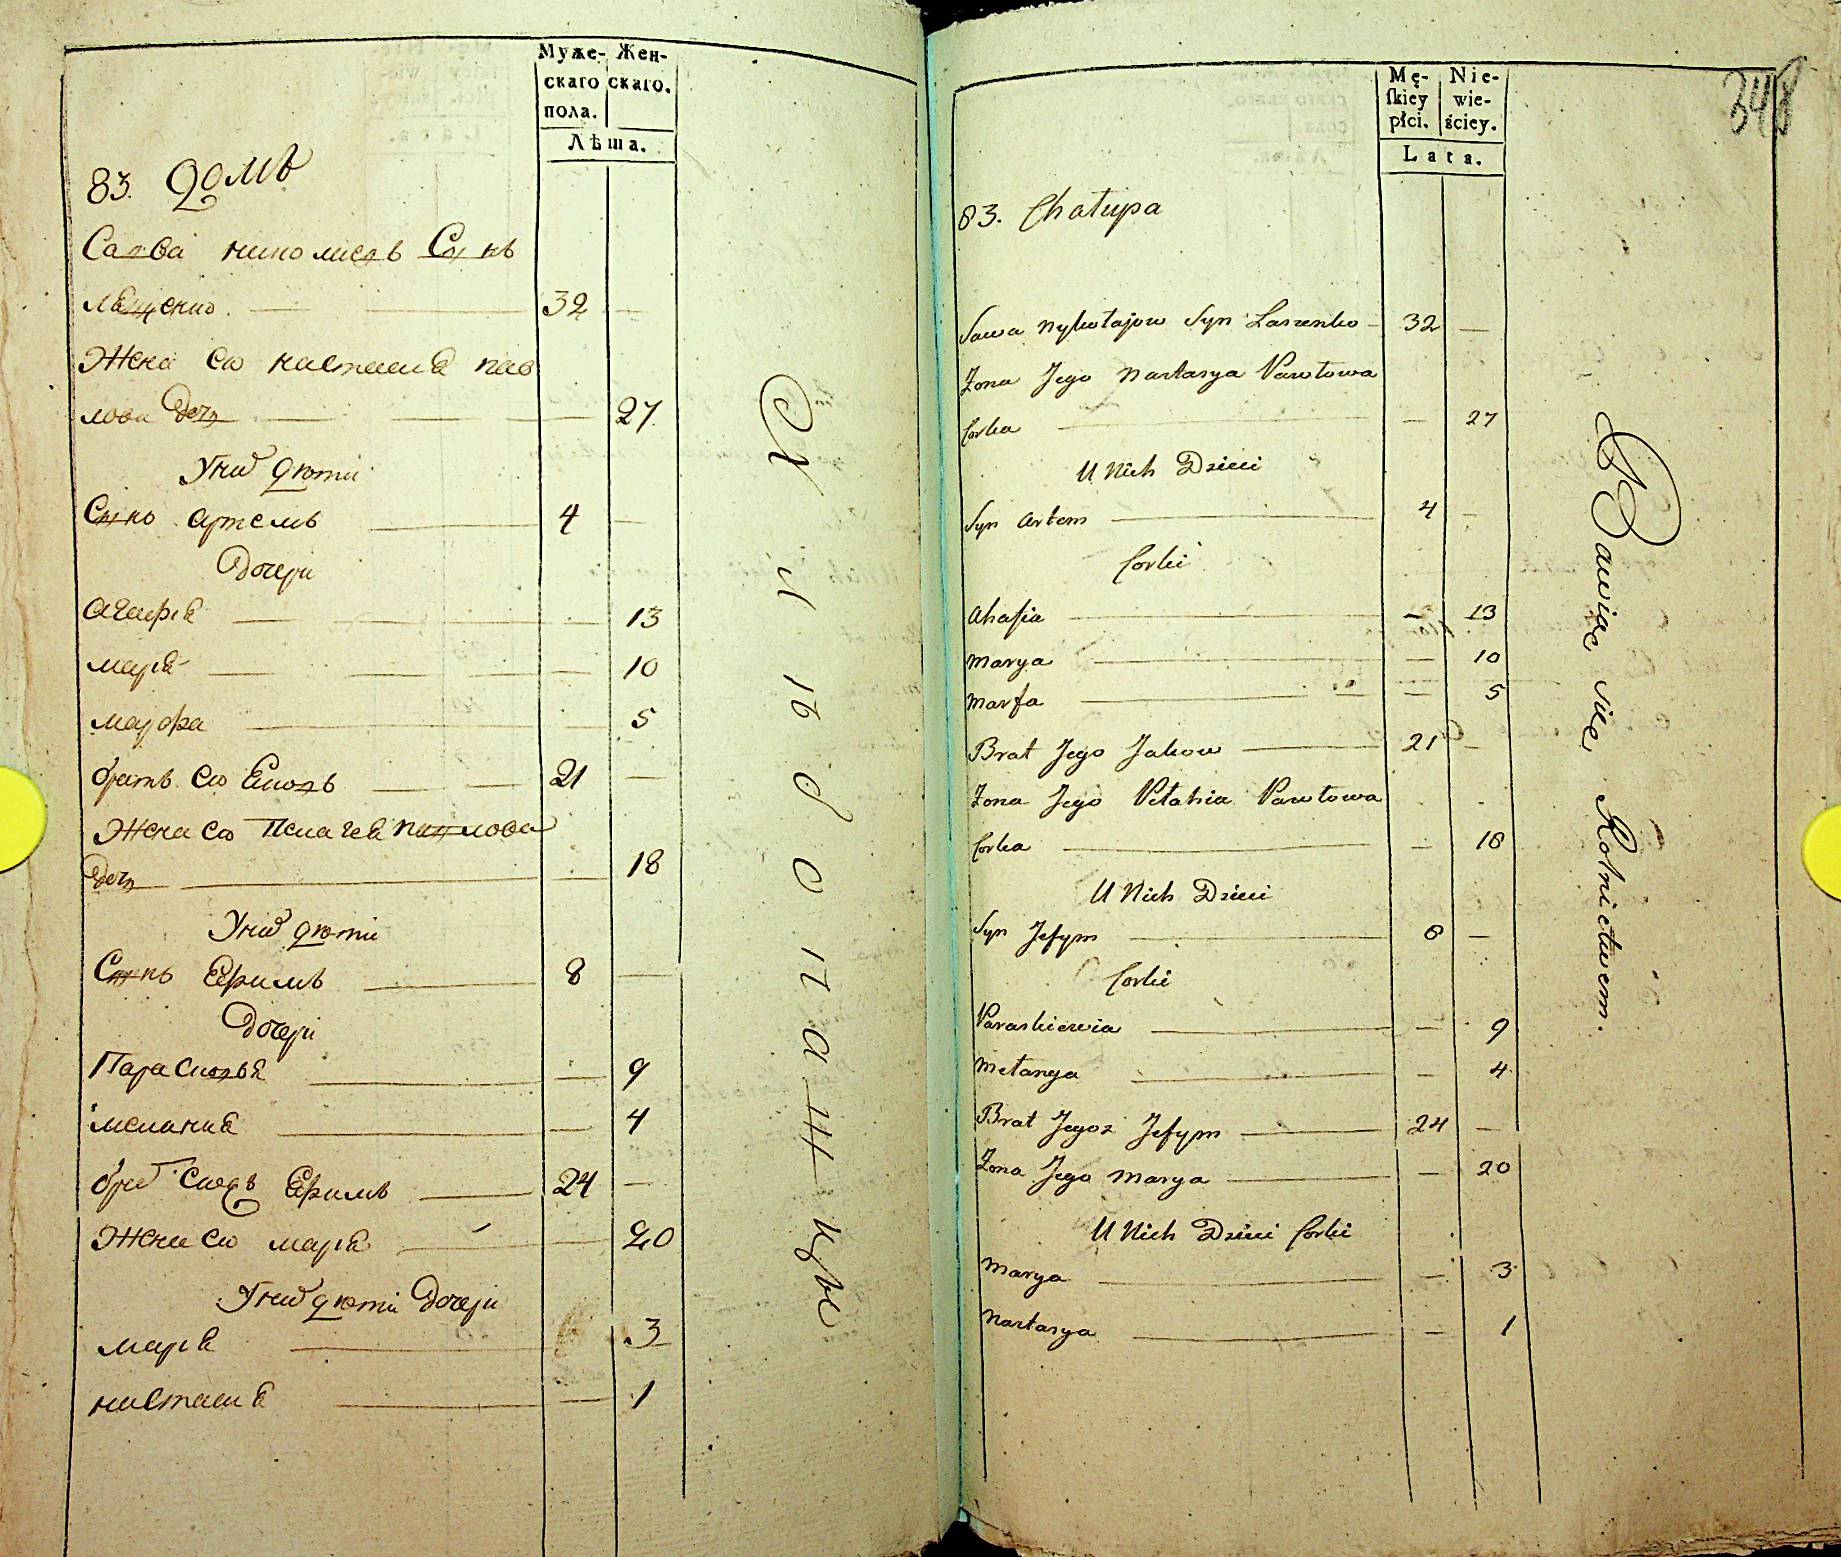 Муже- Жен-
скаго скаго.
пола.
Лѣта.
83. Домъ
Савва николаевъ Сынъ
лященко. 32
Жена Ево настасиꙗ пав
лова Дочь 27
Унихъ дѣти
Сынъ Артемъ 4
Дочери
Агафіꙗ 13
маріꙗ 10
марфа 5
братъ Ево Яковъ 21
Жена Ево Пелагеꙗ павлова
Дочь 18
Унихъ дѣти
Сынъ Ефимъ 8
Дочери
Парасковьꙗ 9
меланиꙗ 4
Ефимъ 24
Жена Ево маріꙗ 20
Унихъ дѣти Дочери
маріꙗ 3
настасиꙗ 1
Хлебопашцы
348
Mę- Nie-
ſkiey wie-
płci. ściey.
Lata.
83. Chałupa
Sawa Nykołajow Syn Laszenko 32
Zona Jego Nastasya Pawłowa
Corka 27
U Nich Dzieci
Syn Artem 4
Corki
Ahafia 13
Marya 10
Marfa 5
Brat Jego Jakow 21
Zona Jego Pełahia Pawłowa
Corka 18
U Nich Dzieci
Syn Jefym 8
Corki
Paraskiewia 9
Mełanya 4
Brat Jegoż Jefym 24
Zona Jego Marya 20
U Nich Dzieci Corki
Marya 3
Nastasya 1
Bawiąc się Rolnictwem.